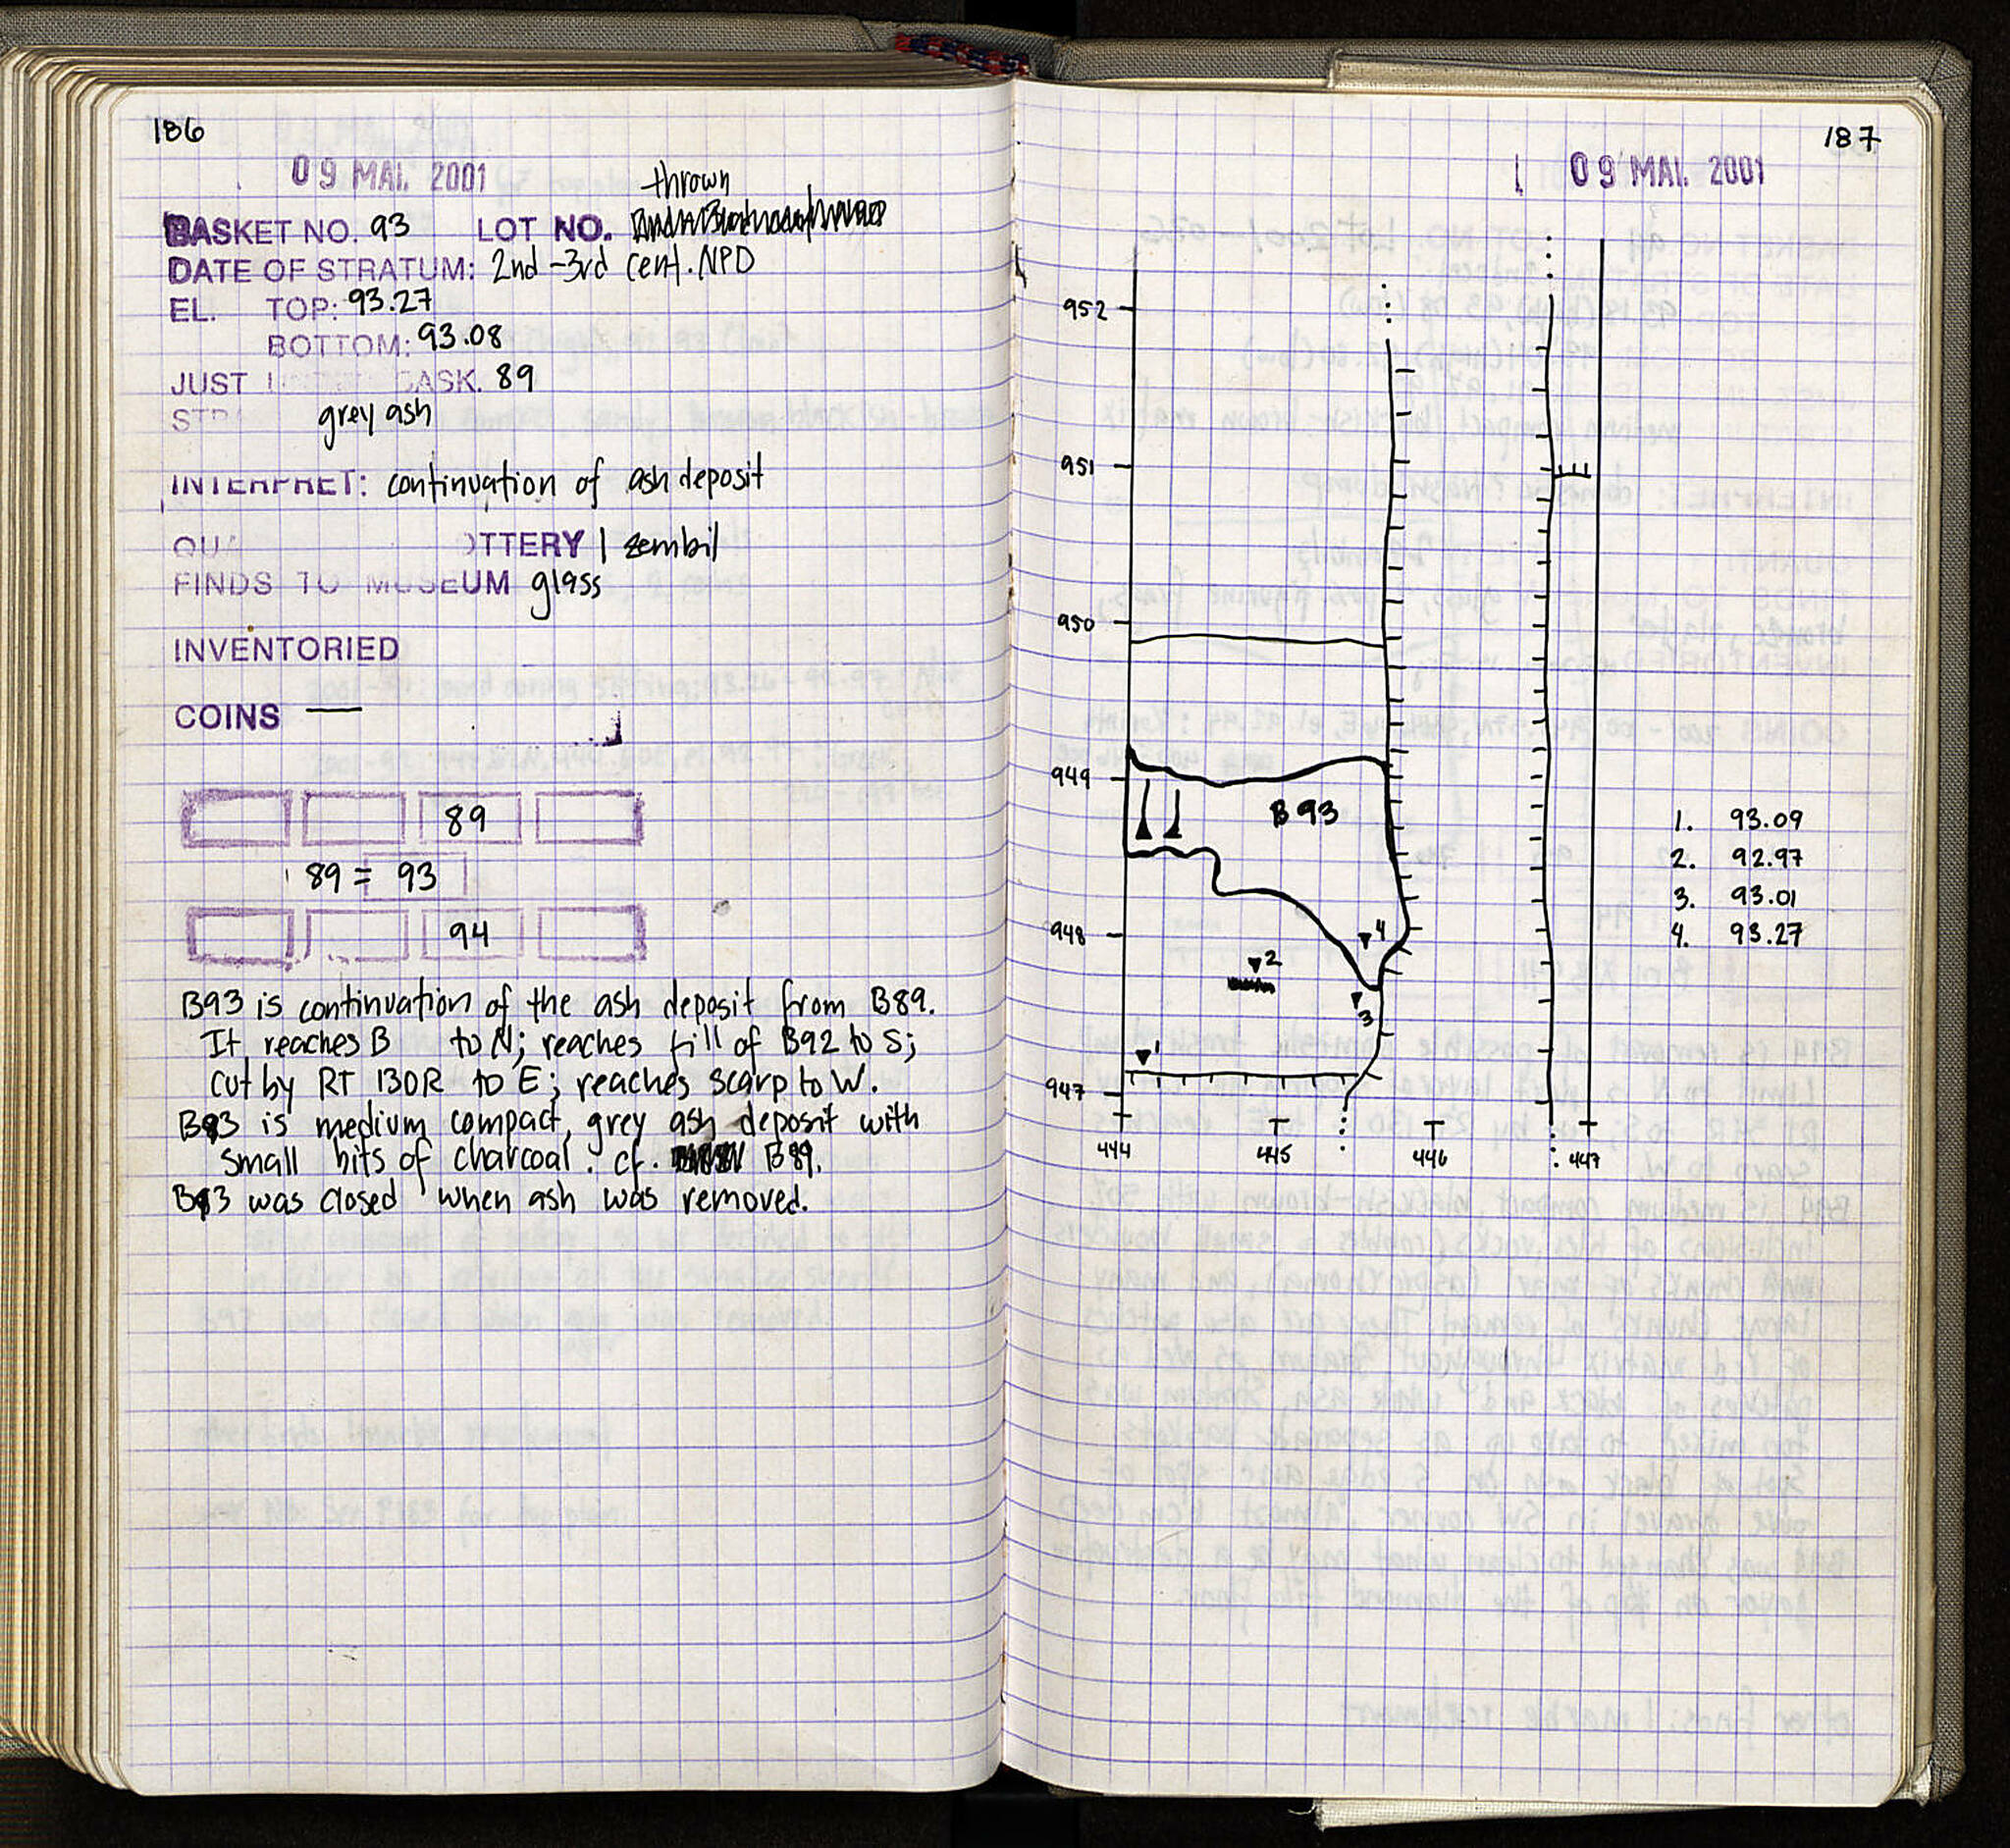 186
09 MAI. 2001
thrown
BASKET NO. 93 LOT NO.
DATE OF STRATUM: 2nd-3rd cent. NPD
EL. TOP: 93.27
BOTTOM: 93.08
JUST BASK. 89
STRA grey ash
INTERPRET: continuation of ash deposit
QUA OTTERY 1 zembil
FINDS TO MUSEUM glass
INVENTORIED
COINS —
89
89 = 93
94
B93 is continuation of the ash deposit from B89.
It reaches B to N; reaches fill of B92 to S;
cut by RT 130R to E; reaches scarp to W.
B93 is medium compact, grey ash deposit with
small bits of charcoal. cf. B89.
B93 was closed when ash was removed.
187
09 MAI. 2001
952
951
950
949
B93
948
947
4
2
3
1
444 445 446 447
1. 93.09
2. 92.97
3. 93.01
4. 93.27